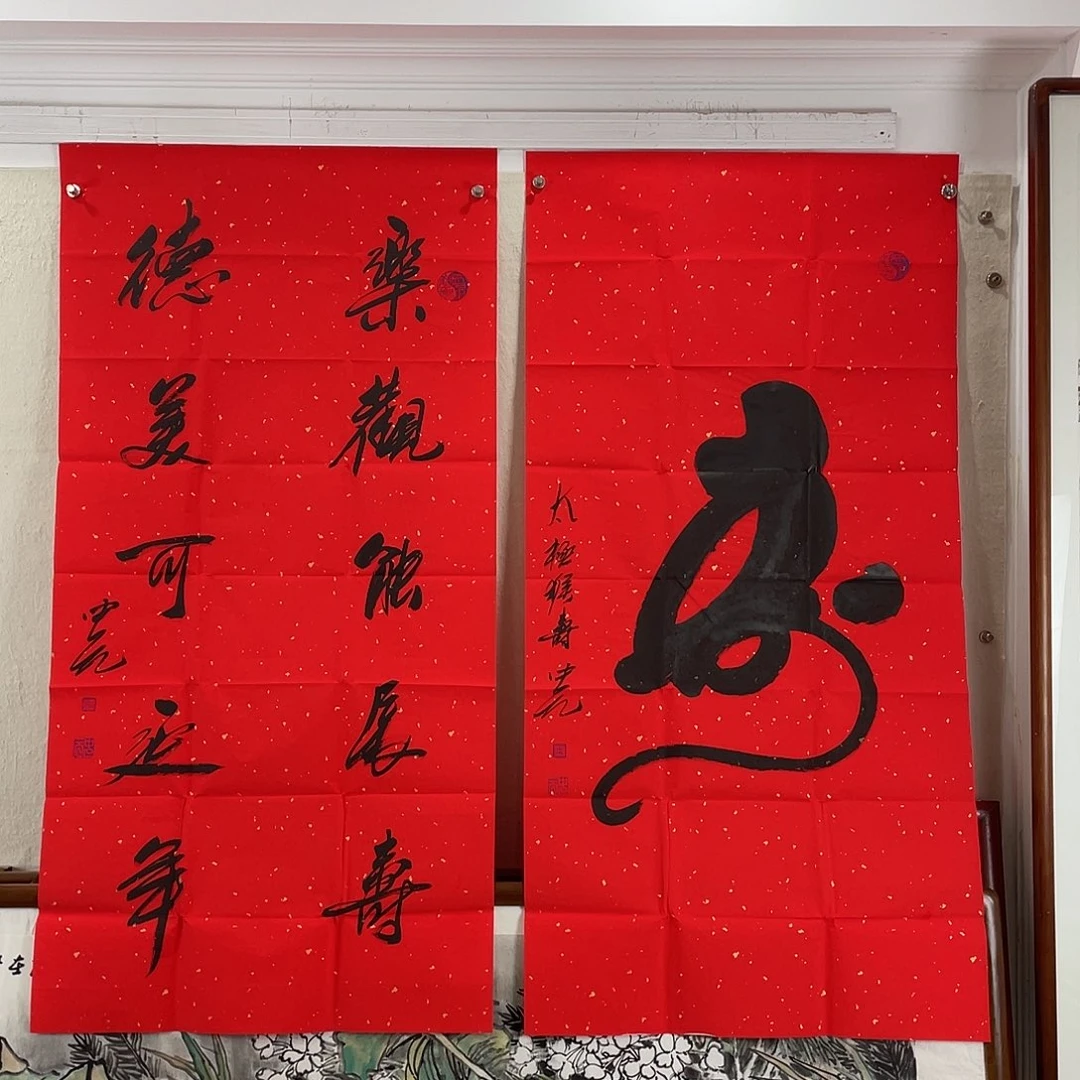 樂觀能長壽
德美可延年
太極猴壽